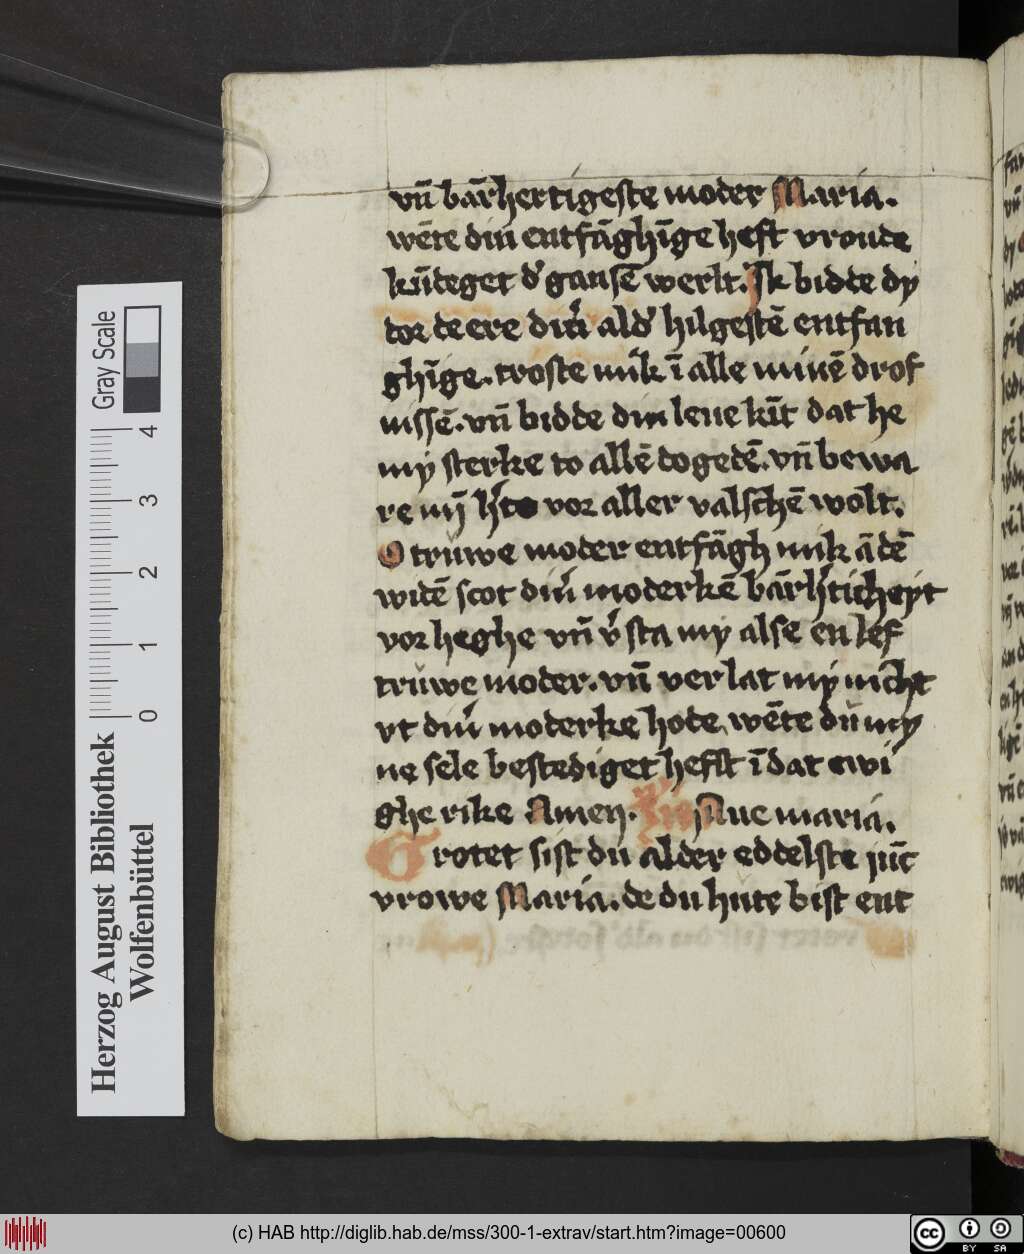 vn̄ bār̄hertigeste moder Maria.
wēte din entfāghīge heft vroude
kūdeget d' gansē werlt. Ik bidde dy
dor de ere din' ald' hilgestē entfan
ghīge. troste mik ī alle minē drof
nissē. vn̄ bidde din leue kīt dat he
my sterke to allē dogedē. vn̄ bewa
re mȳ h'te vor aller valschē wolt.
O truwe moder entfāgh mik ā dē
widē scot din' moderkē bārh'ticheyt
vor heghe vn̄ v'sta my alse en lef
truwe moder. vn̄ verlat my nicht
vt din' moderke hode, wēte du my
ne sele bestediget hefst ī dat ewi
ghe rike Amen. Aue maria.
Grotet sist du alder eddelste jūc
vrowe Maria. de du hute bist ent
Herzog August Bibliothek
Wolfenbüttel
0 1 2 3 4
Gray Scale
(c) HAB http://diglib.hab.de/mss/300-1-extrav/start.htm?image=00600
cc BY SA